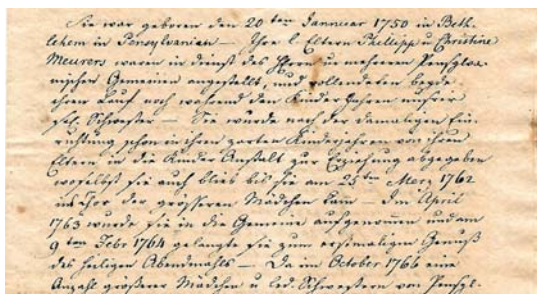 Sie war geboren den 20ten Jannuar 1750 in Beth-
lehem in Pensylvanien – Ihre l. Eltern Phillipp u Christine
Meurers waren in dienst des Herrn in mehreren Pensylva-
nischen Gemeinen angestellt, und vollendeten beyde
ihren Lauf noch während den Kinder Jahren unsrer
sel. Schwester – Sie wurde nach der damaligen Ein-
richtung schon in ihren zarten Kinderjahren von ihren
Eltern in die Kinder Anstalt zur Erziehung abgegeben
woselbst sie auch blieb bis sie am 25ten Merz 1762
ins Chor der grösseren Mädchen kam – Im April
1763 wurde sie in die Gemeine aufgenommen und am
9ten Febr 1764 gelangte sie zum erstmaligen Genuß
des heiligen Abendmahls – Da im October 1766 eine
Anzahl grosserer Mädchen u led. Schwestern von Pensyl-